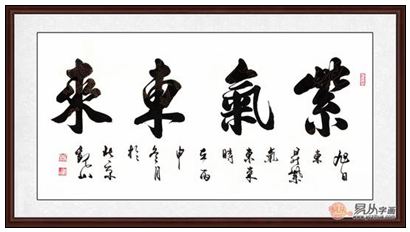 紫氣東來
旭日東昇紫氣東來時在丙申冬月於北京
易从字画